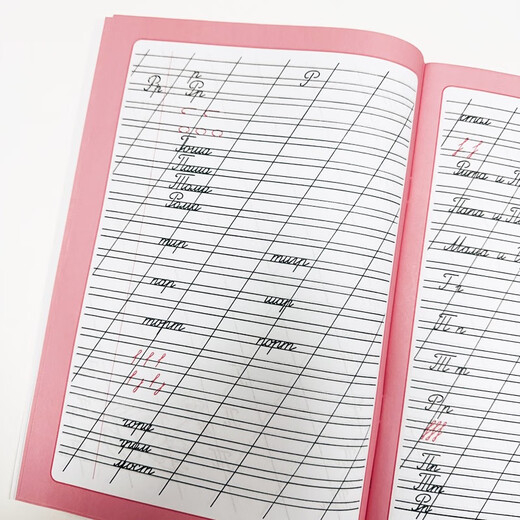 р Р
Рр Рр
Гоша
Паша
Тома
Рома
тир тигр
пар шар
торт порт
гора
грим
мост
стол
Рита и
Папа и
Мама и
Г г
П п
Т т
Р р
Пп
Тт
Рр